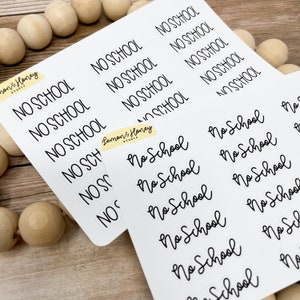 Lemon & Honey
STUDIO
NO SCHOOL NO SCHOOL NO SCHOOL
NO SCHOOL NO SCHOOL NO SCHOOL
NO SCHOOL NO SCHOOL NO SCHOOL
NO SCHOOL
NO SCHOOL
Lemon & Honey
STUDIO
No School No School
No School No School No School
No School No School No School
No School No School No School
No School No School